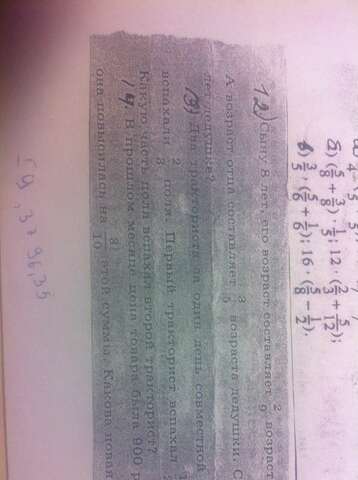 а) 4
б) (5/8 + 3/8) · 1/5; 12 · (2/3 + 5/12);
в) 3/5 · (5/6 + 1/6); 16 · (5/8 − 1/2).
12) Сыну 8 лет, его возраст составляет 2/9 возраст
А возраст отца составляет 3/5 возраста дедушки. С
лет дедушке?
13) Два тракториста за один день совместной
вспахали 2/3 поля. Первый тракторист вспахал
Какую часть поля вспахал второй тракторист?
14. В прошлом месяце цена товара была 900 р
она повысилась на 8/10 этой суммы. Какова новая